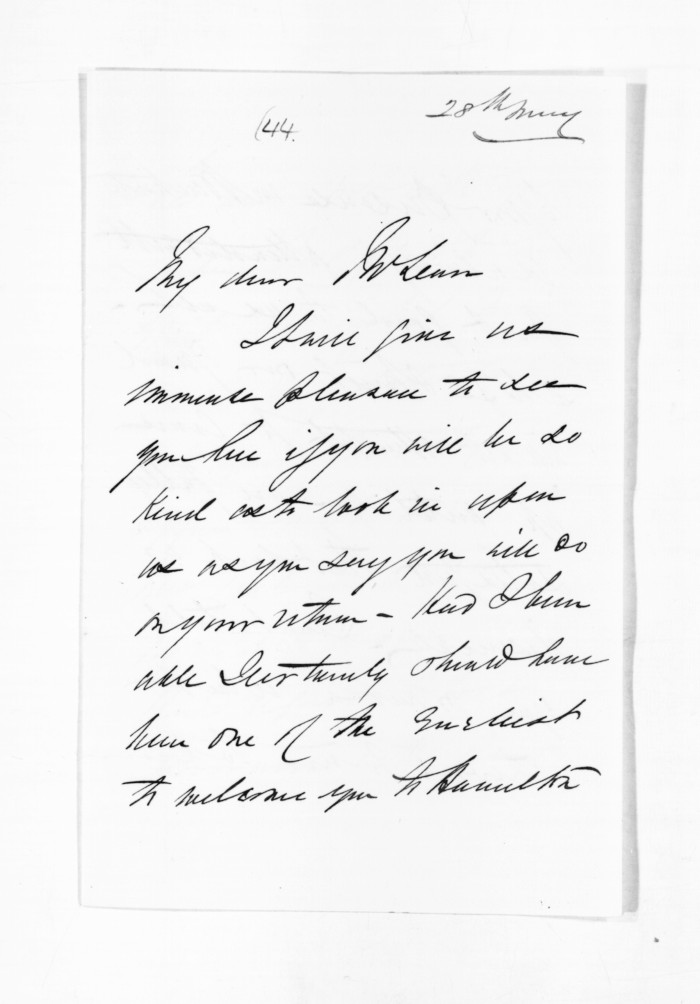 (44.
28th
My dear McLean
It will give us
immense pleasure to see
you here if you will be so
kind as to look in upon
us as you say you will do
on your return - Had I been
able I certainly should have
been one of the Earliest
to welcome you to Hamilton